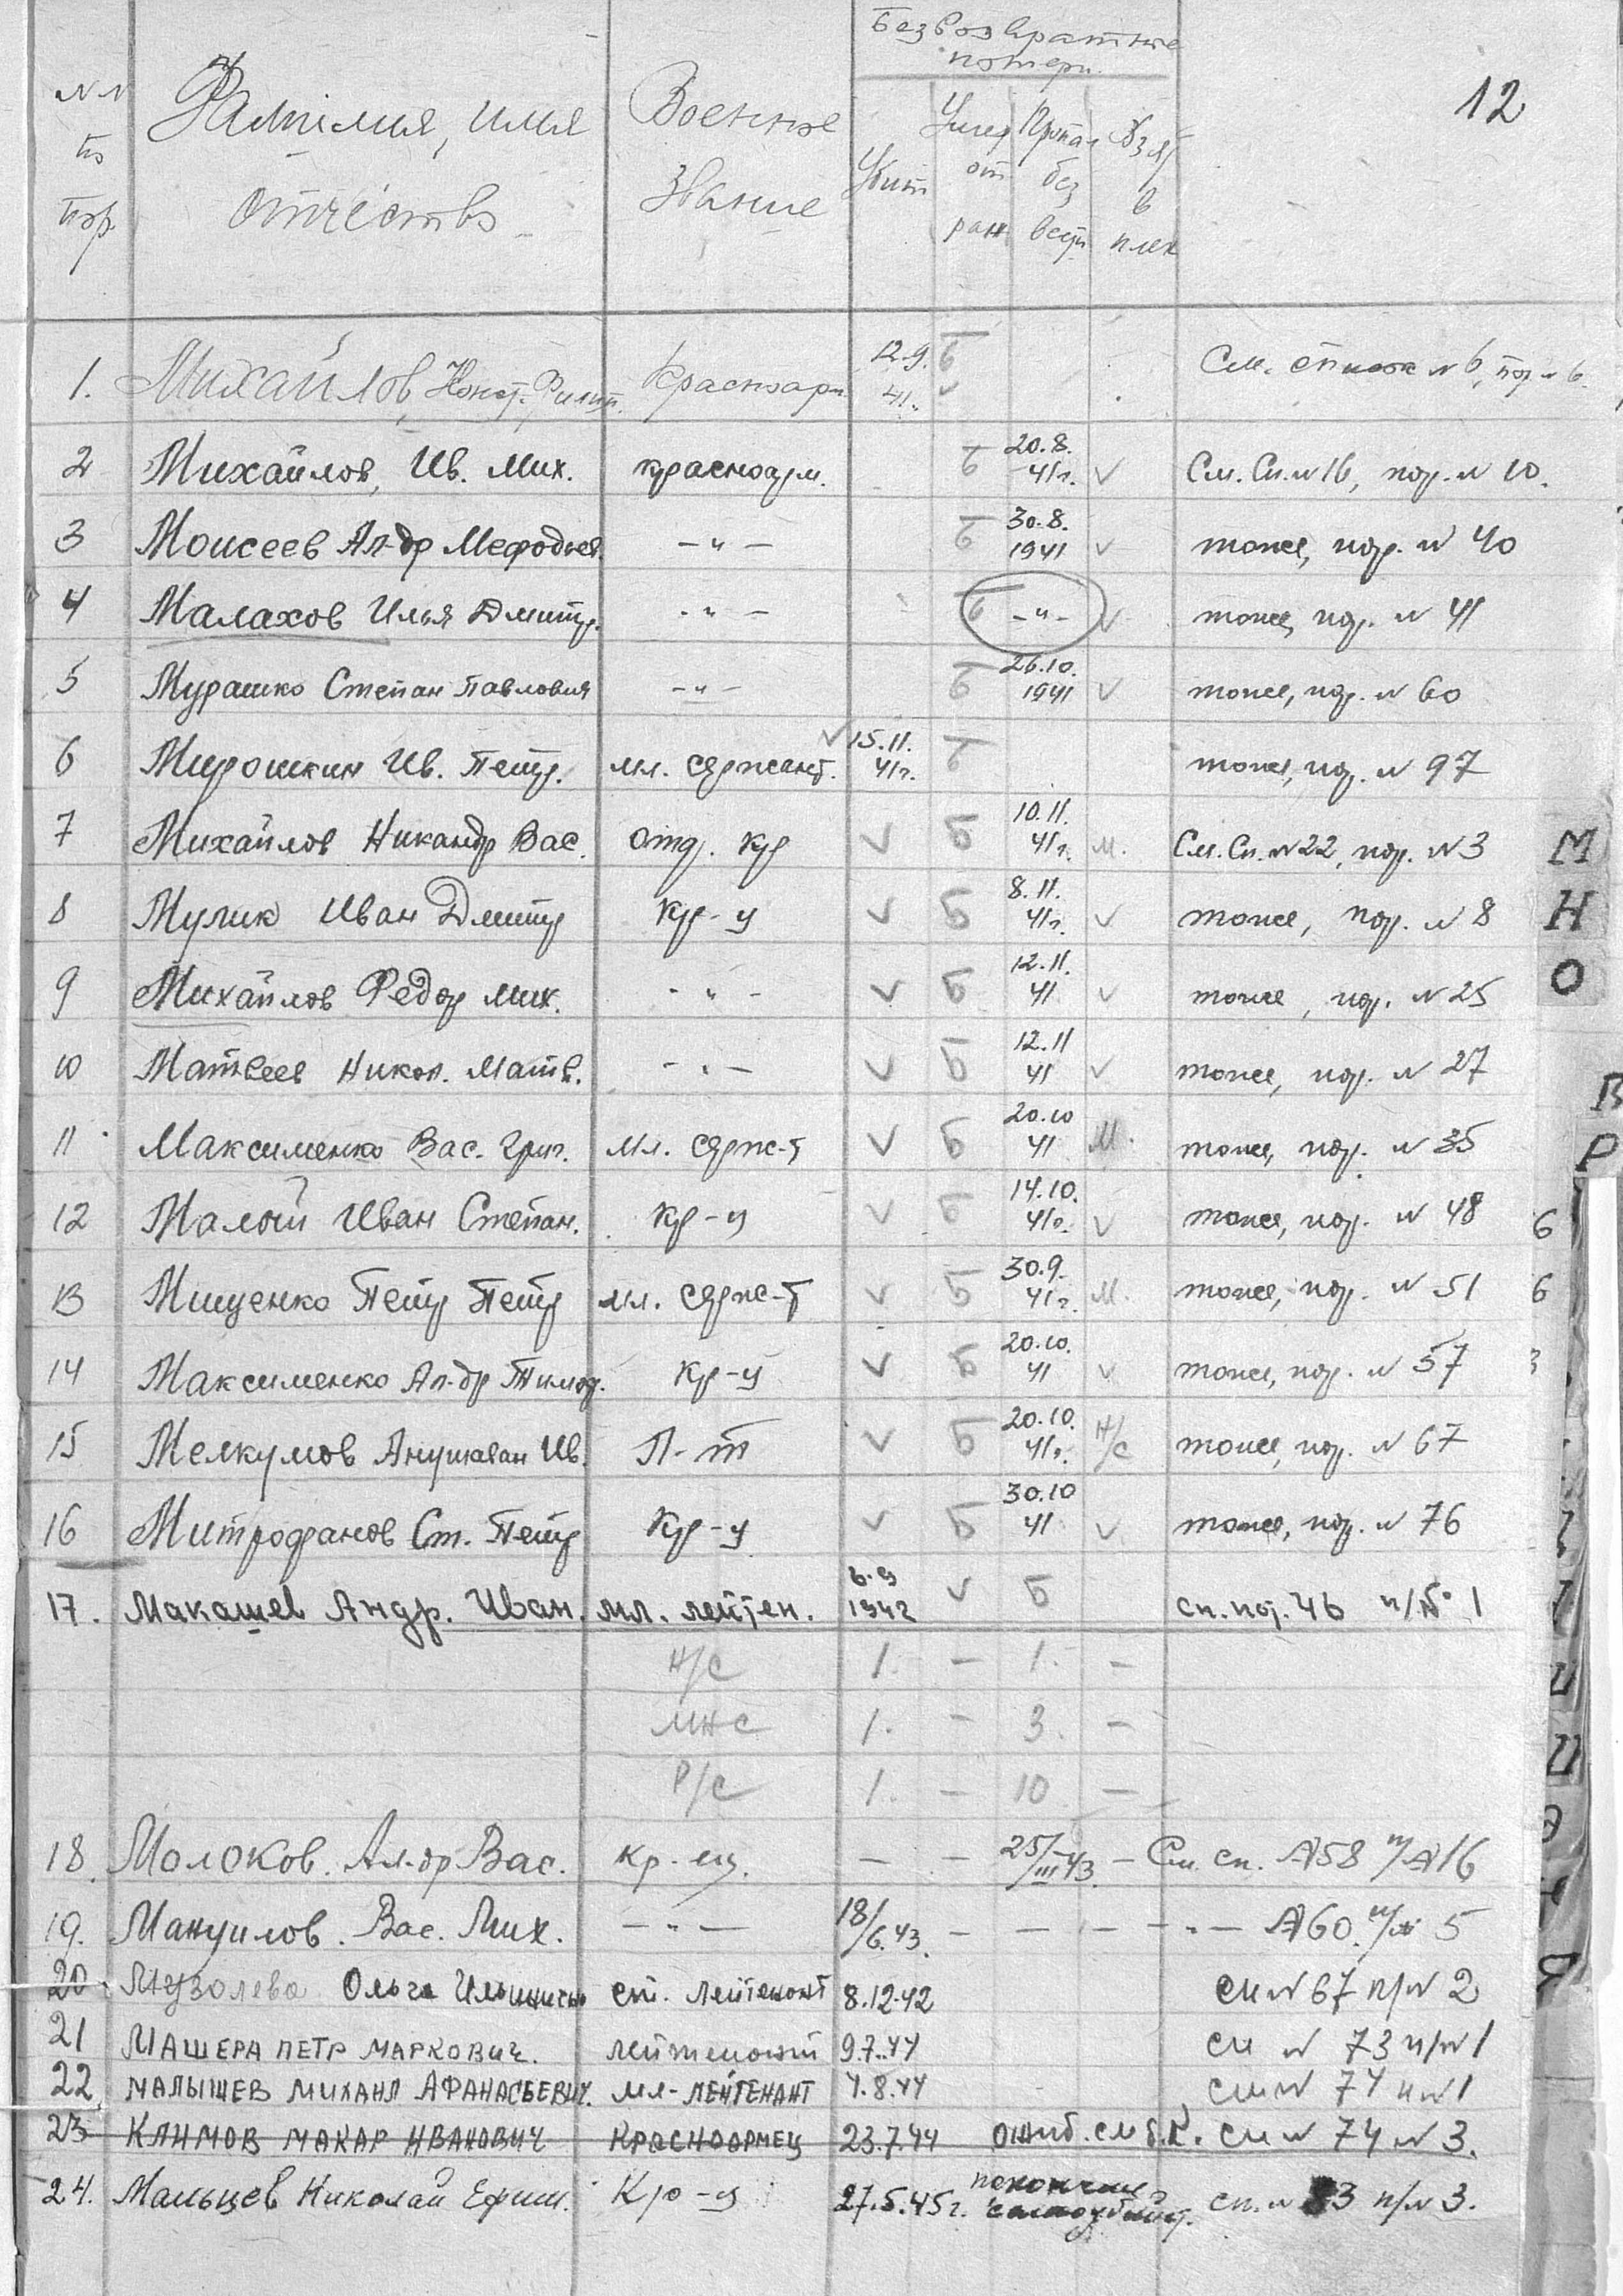 12
Безвозвратные
потери
N N по пор.
Фамилия, имя отчество
Военное звание
Убит
Умер от ран
Пропал без вести
Взят в плен
1. Михайлов, Конст. Филип. Красноарм 12.9. 41г. Б См. список N 6, пор N 6.
2 Михайлов, Ив. Мих. красноарм. Б 20.8. 41г. См. Сп. N 16, пор. N 10.
3 Моисеев Ал-др Мефодьев. –"– Б 30.8. 1941 тоже, пор. N 40
4 Малахов Илья Дмитр. –"– Б –"– тоже, пор. N 41
5 Мурашко Степан Павлович –"– Б 26.10. 1941 тоже, пор. N 60
6 Мирошкин Ив. Петр. мл. сержант. 15.11. 41г. Б тоже, пор. N 97
7 Михайлов Никандр Вас. отд. кр Б 10.11. 41г. М. См. Сп. N 22, пор. N 3
8 Мулик Иван Дмитр Кр-ц Б 8.11. 41г. тоже, пор. N 8
9 Михайлов Федор Мих. –"– Б 12.11. 41 тоже, пор. N 25
10 Матвеев Никол. Матв. –"– Б 12.11 41 тоже, пор. N 27
11 Максименко Вас. Григ. мл. серж-т Б 20.10 41 М. тоже, пор. N 35
12 Малой Иван Степан. Кр-ц Б 14.10. 41г. тоже, пор. N 48
13 Мищенко Петр Петр мл. серж-т Б 30.9. 41г. М. тоже, пор. N 51
14 Максименко Ал-др Тимоф. Кр-ц Б 20.10. 41 тоже, пор. N 57
15 Мелкумов Анушаван Ив. Л-т Б 20.10. 41г. Н/С тоже, пор. N 67
16 Митрофанов Ст. Петр Кр-ц Б 30.10 41 тоже, пор. N 76
17. Макашев Андр. Иван. мл. лейтен. 6.9 1942 Б сп. пот. 46 п/№ 1
Н/С 1. – 1. –
МНС 1. – 3. –
Р/С 1. – 10 –
18. Молоков. Ал-др Вас. Кр-ец. – – 25/III 43. – См. сп. №58 п/№16
19. Мануилов. Вас. Мих. –"– 18/6.43. – – – –"– №60. п/№ 5
20. Музолева Ольга Ильинична ст. лейтенант 8.12.42 сп N 67 п/N 2
21 МАШЕРА ПЕТР МАРКОВИЧ. лейтенант 9.7.44 сп N 73 п/N 1
22. МАЛЫШЕВ МИХАИЛ АФАНАСЬЕВИЧ. мл-ЛЕЙТЕНАНТ 4.8.44 сп N 74 п N 1
23 КЛИМОВ МАКАР ИВАНОВИЧ КРАСНОАРМЕЦ 23.7.44 ошиб. см б. К. сп N 74 N 3.
24. Мальцев Николай Ефим. Кр-ц 27.5.45г. покончил самоубийст. сп. N 3 п/N 3.
М
Н
О
В
Р